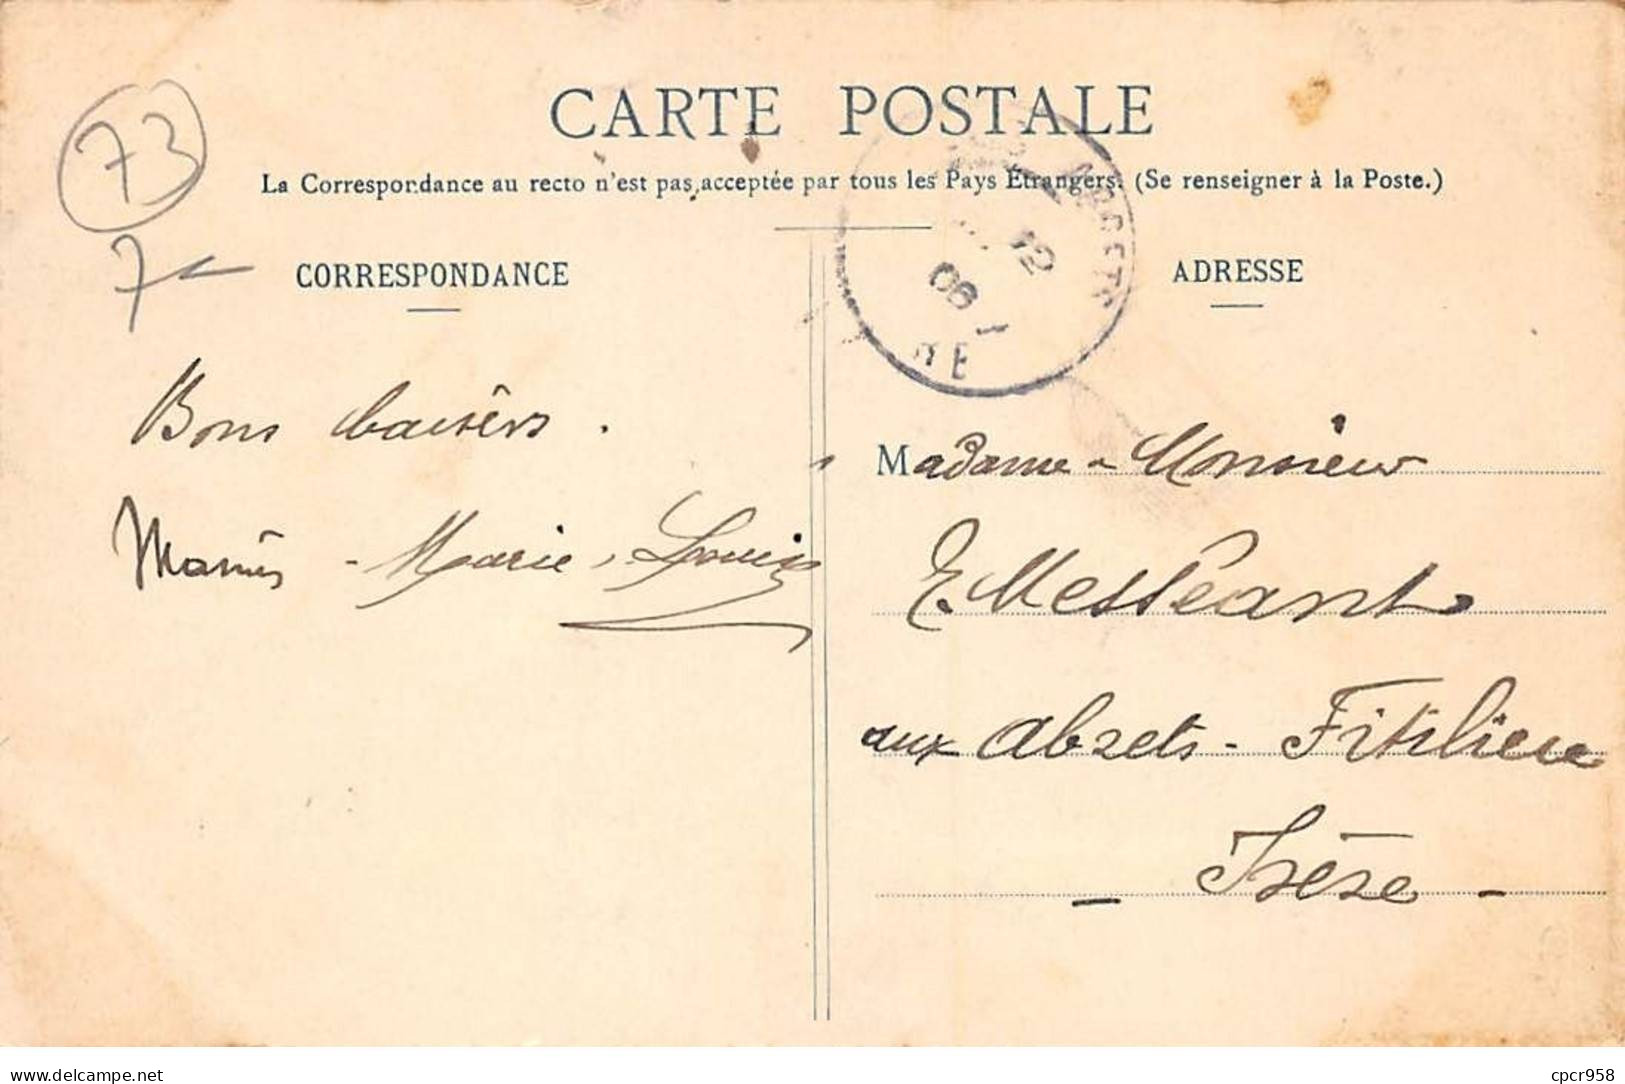 CARTE POSTALE
La Correspondance au recto n'est pas acceptée par tous les Pays Étrangers. (Se renseigner à la Poste.)
73
7
CORRESPONDANCE
ADRESSE
12
06
Bons baisers.
Marius - Marie-Louise
Madame - Monsieur
E. Messéant
aux Abrets - Fitilieu
- Isère -
www.delcampe.net
cpcr958